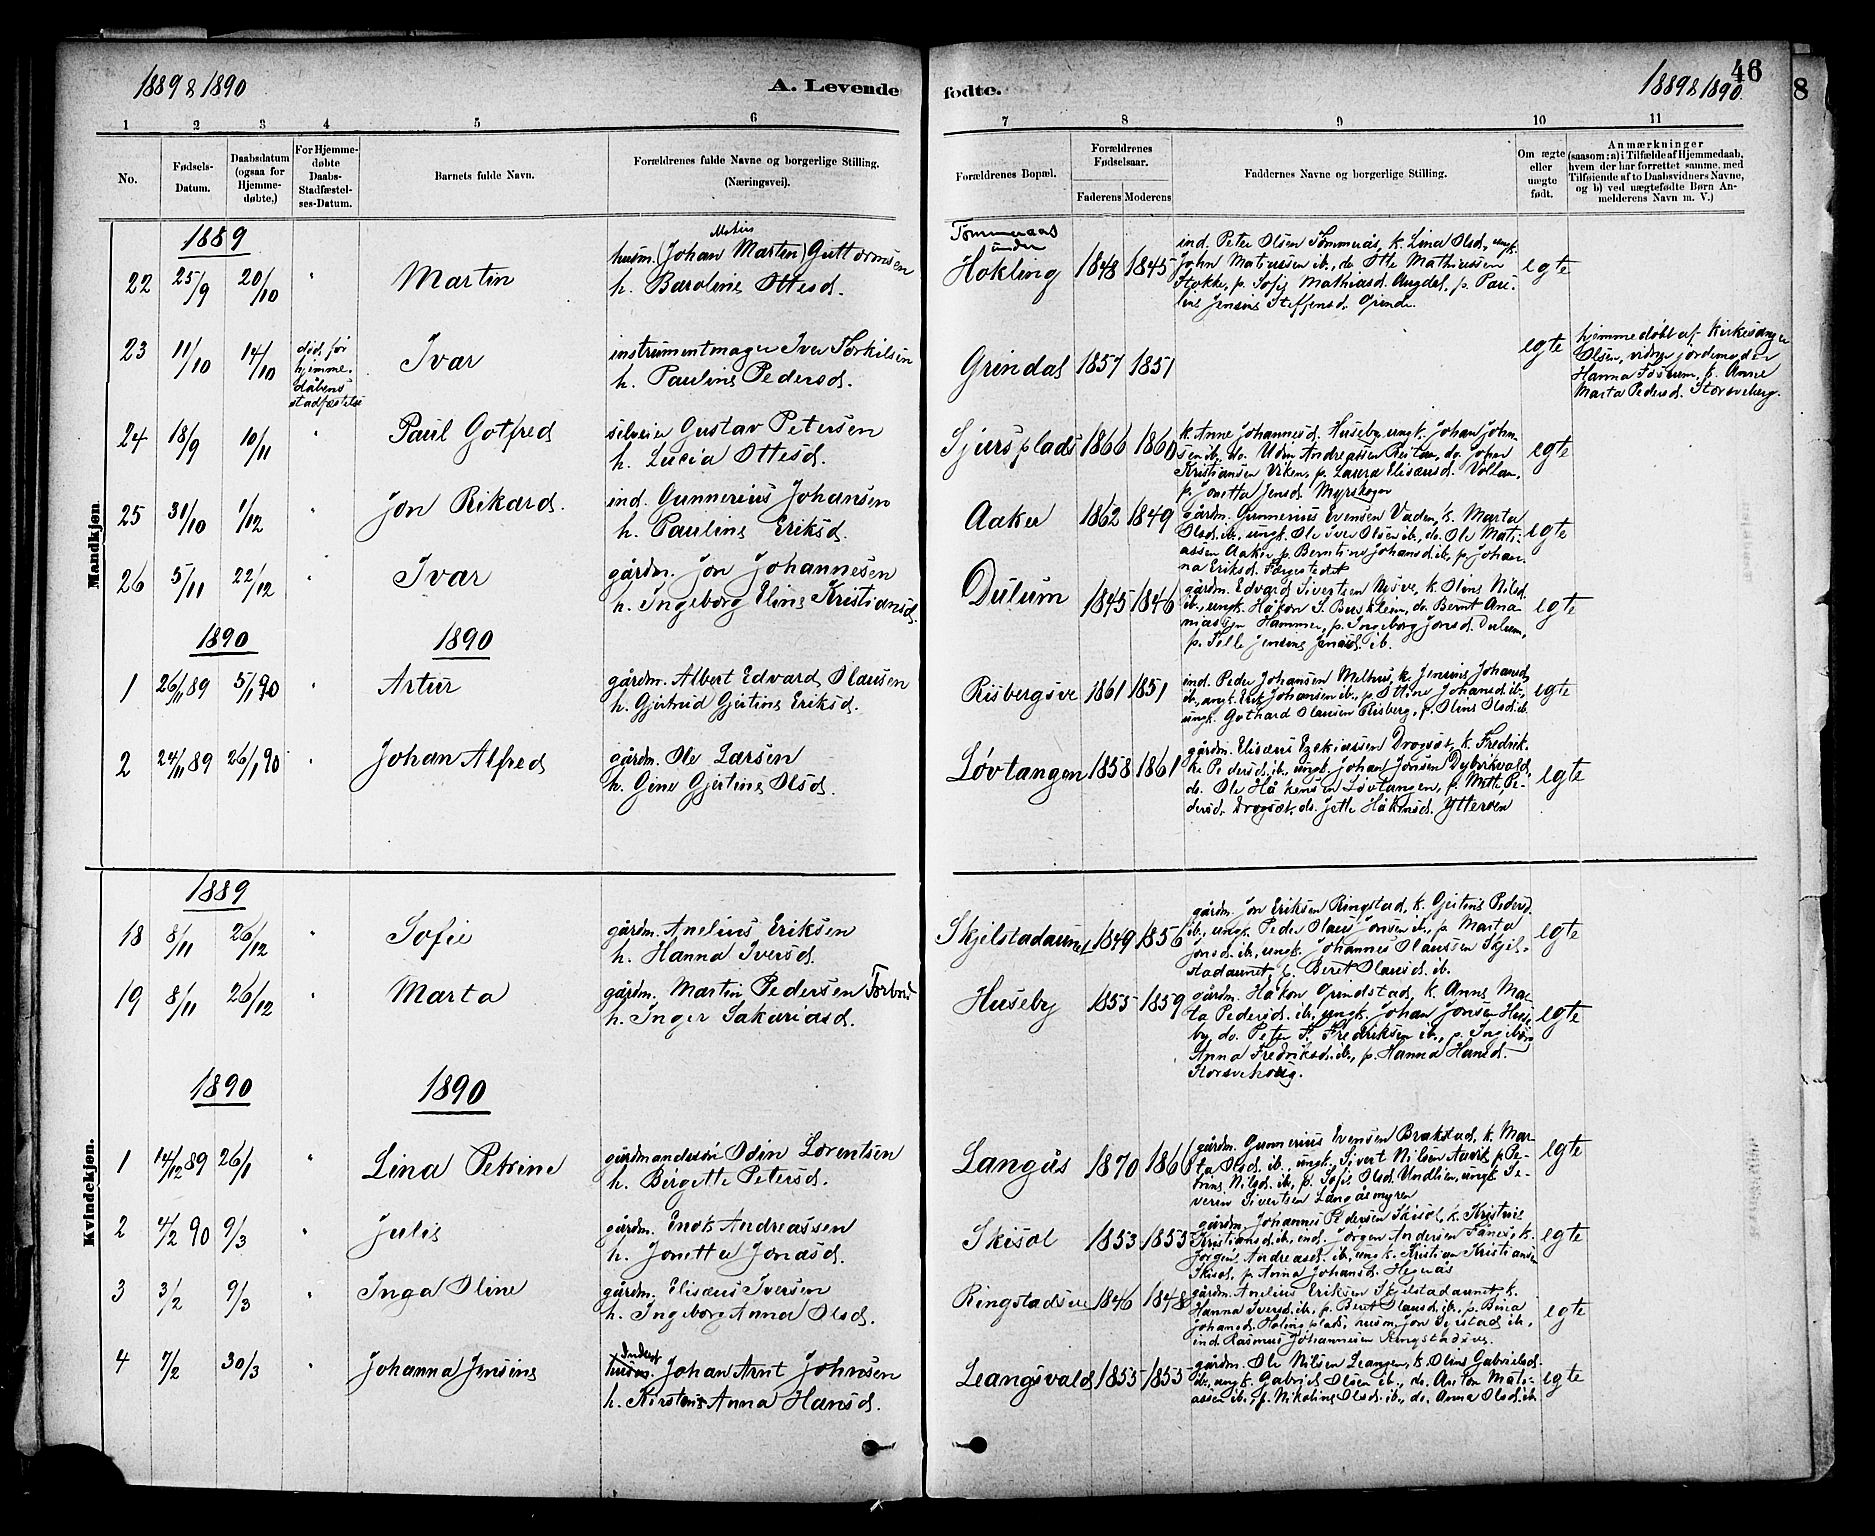 1889 & 1890
A. Levende
fødte.
1889 & 1890.
46
8
1 2 3 4 5 6 7 8 9 10 11
No.
Fødsels-Datum.
Daabsdatum (ogsaa for Hjemme-døbte.)
For Hjemme-døbte Daabs-Stadfæstel-ses-Datum.
Barnets fulde Navn.
Forældrenes fulde Navne og borgerlige Stilling. (Næringsvei).
Forældrenes Bopæl.
Forældrenes Fødselsaar.
Faderens Moderens
Faddernes Navne og borgerlige Stilling.
Om ægte eller uægte født.
Anmærkninger
(saasom: a) i Tilfælde af Hjemmedaab,
hvem der har forrettet samme, med
Tilføiende af to Daabsvidners Navne,
og b) ved uægtefødte Børn An-
melderens Navn m. V.)
Mandkjøn
1889
22 25/9 20/10 " Martin
husm. (Johan Martin) Guttormsen
h. Baroline Ottesd.
Tømmeraas under Hokling 1848 1845
ind. Peter Olsen Tømmerås, k. Lina Olsd., ungk.
John Matiassen ib., do Otte Mathiassen
Stokke, p. Sofie Mathiasd. Augdal, p. Pau-
line Jensine Steffensd. Grinde.
egte
23 11/10 14/10
død før
hjemme-
dåbens
stadfæstelse
Ivar
instrumentmager Iver Torkilsen
h. Pauline Pedersd.
Grindal 1857 1851
egte
hjemmedøbt af kirkesanger
Olsen, vidner jordemoder
Hanna Fossum, k. Anne
Marta Pedersd. Storsveberg.
24 18/9 10/11 " Paul Gotfred
selveier Gustav Petersen
h. Lucia Ottesd.
Sjursplads 1866 1860
k. Anne Johannesd. Huseby, ungk. Johan John-
sen ib., do. Udin Andreassen Reitan, do. Johan
Kristiansen Viken, p. Laura Elisæusd. Vollan,
p. Jonetta Jensd. Myrskogen
egte
25 31/10 1/12 " Jon Rikard
ind. Gunnerius Johansen
h. Pauline Eriksd.
Aaker 1862 1849
gårdm. Gunnerius Evensen Vaden, k. Marta
Olsd. ib., ungk. Ole Iver Olsen ib., do. Ole Mati-
assen Aaker, p. Berntine Johansd. ib., p. Johan-
na Eriksd. Færgestedet
egte
26 5/11 22/12 " Ivar
gårdm. Jon Johannesen
h. Ingeborg Eline Kristiansd.
Dulum 1845 1846
gårdm. Edvard Sivertsen Nesve, k. Oline Nilsd.
ib., ungk. Håkon S. Buskleim, do. Bernt Ana-
niassen Hammer, p. Ingeborg Jonsd. Dulum,
p. Jensine Jensd. ib.
egte
1890 1890
1 26/11 89 5/1 90 " Artur
gårdm. Albert Edvard Olausen
h. Gjertrud Gjertine Eriksd.
Risbergsve 1861 1851
ind. Peder Johansen Melhus, k. Jensine Johansd.
ib., ungk. Erik Johansen ib., p. Ottine Johansd. ib.,
ungk. Gothard Olausen Risberg, p. Oline Olsd. ib.
egte
2 24/11 89 26/1 90 " Johan Alfred
gårdm. Ole Larsen
h. Gine Gjertine Olsd.
Løvtangen 1858 1861
gårdm. Elisæus Ezekiassen Dragset, k. Fredrik-
ke Pedersd. ib., ungk. Johan Jonsen Dybvikvald,
do. Ole Håkensen Løvtangen, p. Mette Pe-
dersd. Dragset, do. Jette Håkensd. Ytterøen
egte
Kvindekjøn.
1889
18 8/11 26/12 " Sofie
gårdm. Anelius Eriksen
h. Hanna Iversd.
Skjelstadaunet 1849 1856
gårdm. Jon Eriksen Ringstad, k. Gjertine Pedersd.
ib., ungk. Peder Olaus Jonsen ib., p. Marta
Jonsd. ib., ungk. Johannes Olaussen Skjel-
stadaunet, p. Beret Olausd. ib.
egte
19 8/11 26/12 " Marta
gårdm. Martin Pedersen Forbord
h. Inger Sakariasd.
Huseby 1855 1859
gårdm. Håkon Grindstad, k. Anne Mar-
ta Pedersd. ib., ungk. Johan Jonsen Huse-
by, do. Peter F. Fredriksen ib., p. Ingeborg
Anna Fredriksd. ib., p. Hanna Hansd.
Storsvehaug.
egte
1890 1890
1 14/12 89 26/1 " Lina Petrine
gårdmandssøn Odin Lorentsen
h. Birgitte Petersd.
Langås 1870 1866
gårdm. Gunnerius Evensen Brakstad, k. Mar-
ta Olsd. ib., ungk. Sivert Nilsen Aavik, p. Pe-
trine Nilsd. ib., p. Sofie Olsd. Undlien, ungk. Se-
verin Sivertsen Langåsmyren
egte
2 4/2 90 9/3 " Julie
gårdm. Enok Andreassen
h. Jonetta Jonasd.
Skisol 1853 1853
gårdm. Johannes Pedersen Skisol, k. Kristine
Kristiansd. ib., ind. Jørgen Andersen Fånes, k.
Jørgine Andreasd. ib., ungk. Kristian Kristiansen
Skisol, p. Anna Johansd. Hegnås
egte
3 3/2 9/3 " Inga Oline
gårdm. Elisæus Iversen
h. Ingeborg Anna Olsd.
Ringstadsve 1846 1848
gårdm. Anelius Eriksen Skjelstadaunet, k.
Hanna Iversd. ib., p. Beret Olausd. ib., p. Bina
Johansd. Holingplads, husm. Jon ib.,
ind. Rasmus Johannesen Ringstadsve.
egte
4 7/2 30/3 " Johanna Jensine
husm. Inderst Johan Arnt Johnsen
h. Kirstine Anna Hansd.
Leangsvald 1855 1855
gårdm. Ole Nilsen Leangen, k. Oline Gabrielsd.
ib., ungk. Gabriel Olsen ib., do. Anton Mati-
assen ib., p. Nikoline Olsd. ib., do. Anna Olsd. ib.
egte